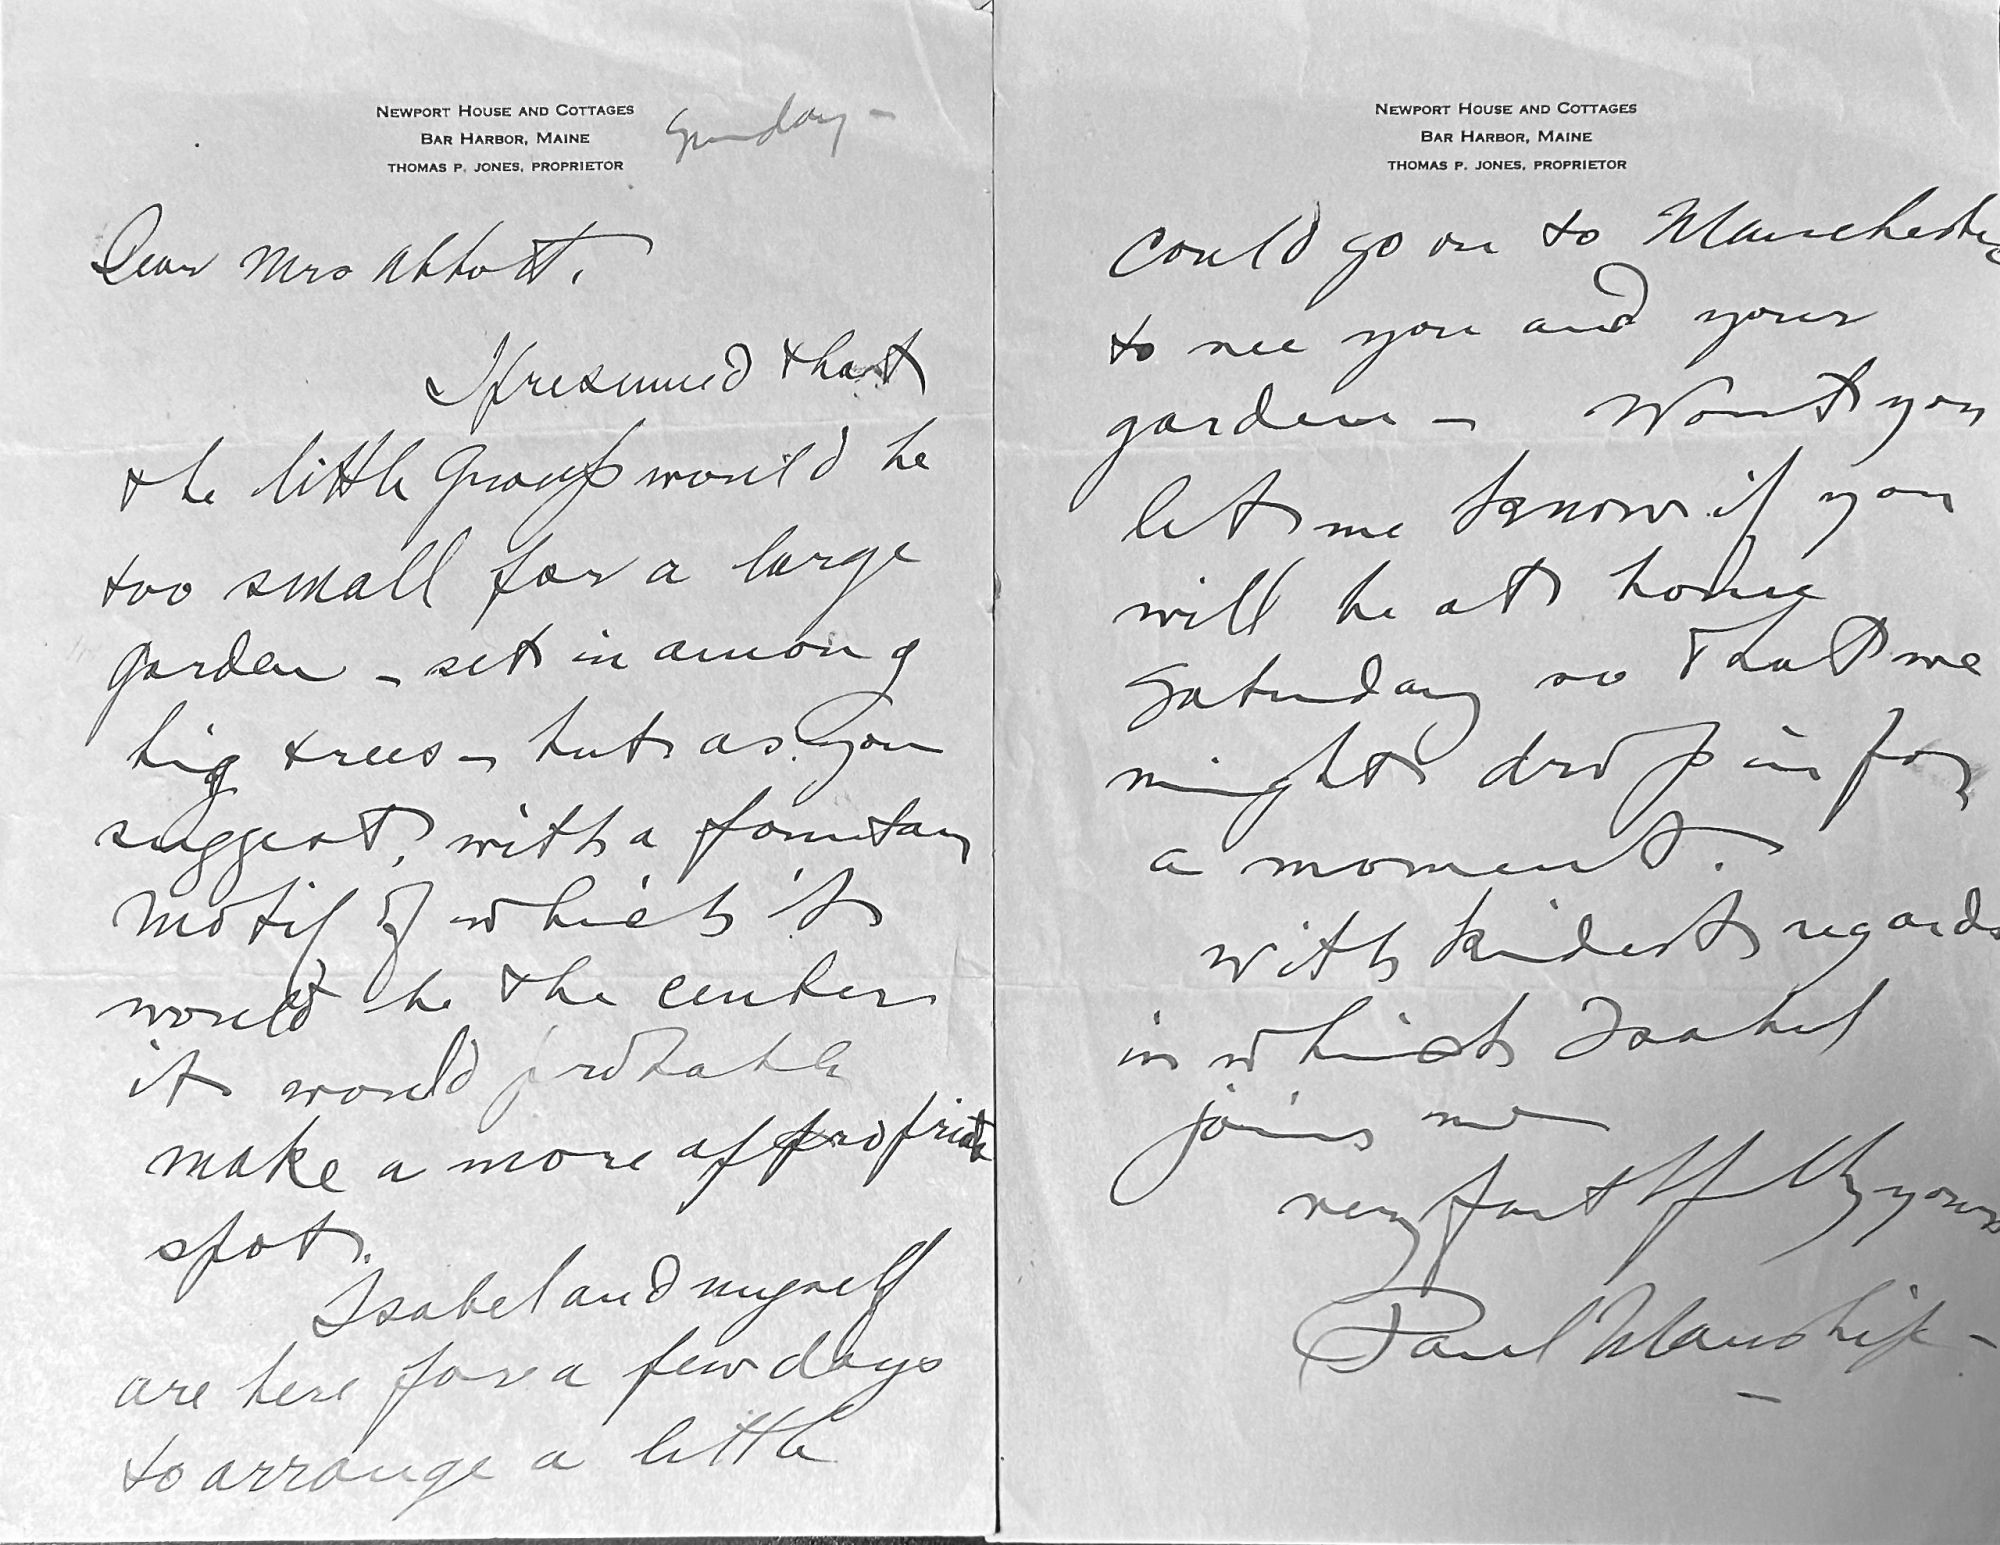 NEWPORT HOUSE AND COTTAGES
BAR HARBOR, MAINE
THOMAS P. JONES, PROPRIETOR
Sunday –
Dear Mrs Abbott,
I presumed that
the little group would be
too small for a large
garden – set in among
big trees – but as you
suggest, with a fountain
motif of which it
would be the center
it would probable
make a more appropriate
spot.
Isabel and myself
are here for a few days
to arrange a little
NEWPORT HOUSE AND COTTAGES
BAR HARBOR, MAINE
THOMAS P. JONES, PROPRIETOR
could go on to Manchester
to see you and your
garden – Wont you
let me know if you
will be at home
Saturday so that we
might drop in for
a moment.
with kindest regards
in which Isabel
joins me
very faithfully yours
Paul Manship –